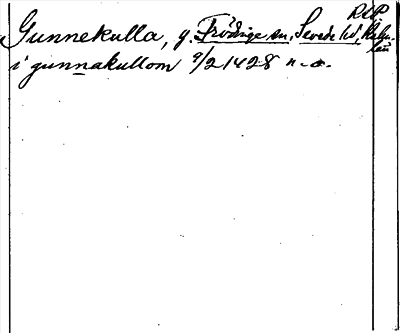 RAP
Gunnekulla, g. Frödinge sn, Sevede hd, Kalm.
län
i gunnakullom 9/2 1428 n.a.